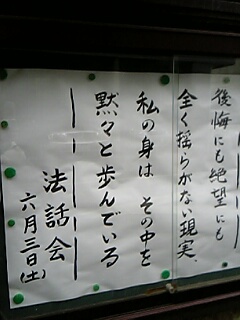 後悔にも絶望にも
全く揺らがない現実、
私の身は その中を
黙々と歩んでいる
法話会
六月三日(土)